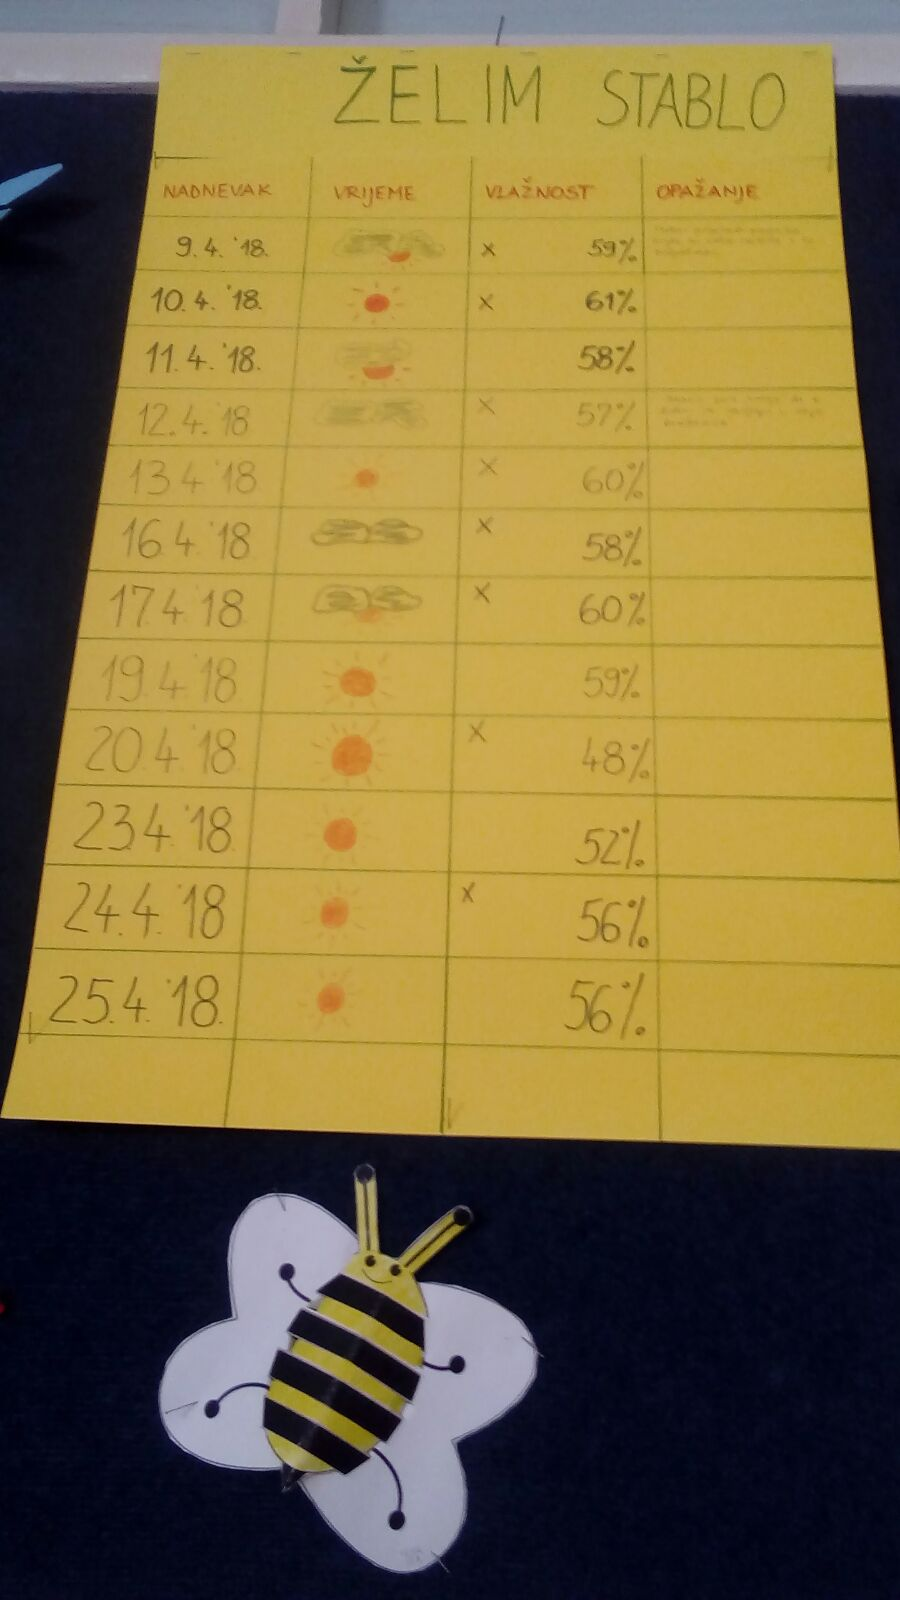 ŽELIM STABLO
NADNEVAK VRIJEME VLAŽNOST OPAŽANJE
9.4.'18. x 59%
10.4.'18. x 61%
11.4.'18. 58%
12.4.'18 x 57%
13 4 '18 x 60%
16.4.'18 x 58%
17.4.'18 x 60%
19.4.'18 59%
20.4.'18 x 48%
23.4.'18 52%
24.4.'18 x 56%
25.4.'18. 56%